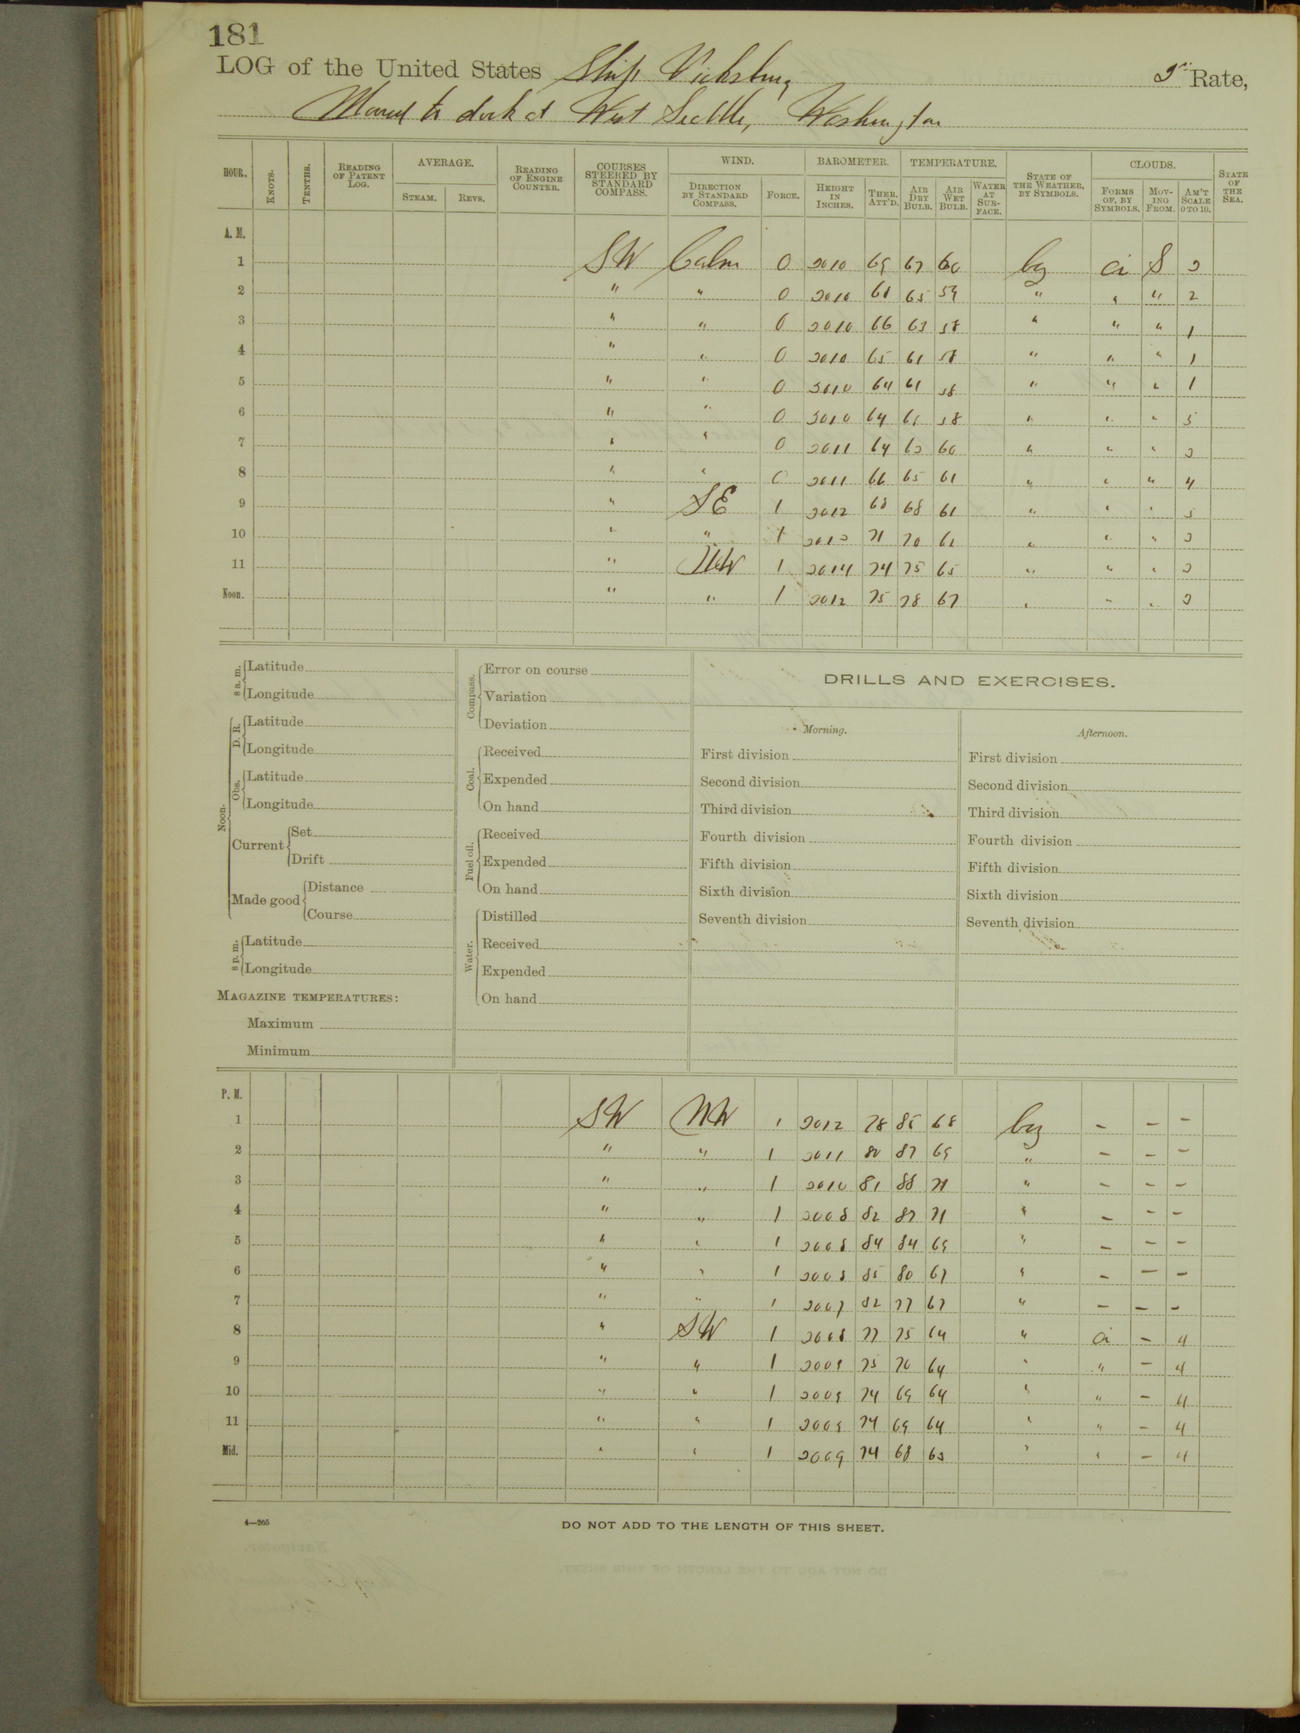 181
LOG of the United States Ship Vicksburg 2nd Rate,
Moored to dock at West Seattle, Washington
HOUR. KNOTS. TENTHS. READING OF PATENT LOG. AVERAGE. STEAM. REVS. READING OF ENGINE COUNTER. COURSES STEERED BY STANDARD COMPASS. WIND. DIRECTION BY STANDARD COMPASS. FORCE. BAROMETER. HEIGHT IN INCHES. THER. ATT'D. TEMPERATURE. AIR DRY BULB. AIR WET BULB. WATER AT SURFACE. STATE OF THE WEATHER, BY SYMBOLS. CLOUDS. FORMS OF, BY SYMBOLS. MOVING FROM. AM'T SCALE 0 TO 10. STATE OF THE SEA.
A. M.
1 SW Calm 0 3010 69 67 60 bz ci S 2
2 " " 0 3010 68 65 59 " " " 2
3 " " 0 3010 66 63 58 " " " 1
4 " " 0 3010 65 61 58 " " " 1
5 " " 0 3010 64 61 58 " " " 1
6 " " 0 3010 64 61 58 " " " 3
7 " " 0 3011 64 62 60 " " " 3
8 " " 0 3011 66 65 61 " " " 4
9 " SE 1 3012 68 68 61 " " " 3
10 " " 1 71 70 " " " 3
11 " NW 1 3014 74 75 65 " " " 3
Noon. " " 1 3012 75 78 67 " " " 3
8 a. m. Latitude
Longitude
Noon. D. R. Latitude
Longitude
Obs. Latitude
Longitude
Current Set
Drift
Made good Distance
Course
8 p. m. Latitude
Longitude
MAGAZINE TEMPERATURES:
Maximum
Minimum
Compass. Error on course
Variation
Deviation
Coal. Received
Expended
On hand
Fuel oil. Received
Expended
On hand
Water. Distilled
Received
Expended
On hand
DRILLS AND EXERCISES.
Morning.
First division
Second division
Third division
Fourth division
Fifth division
Sixth division
Seventh division
Afternoon.
First division
Second division
Third division
Fourth division
Fifth division
Sixth division
Seventh division
P. M.
1 SW NW 1 3012 78 85 68 bz - - -
2 " " 1 3011 80 87 69 " - - -
3 " " 1 3010 81 88 71 " - - -
4 " " 1 3008 82 87 71 " - - -
5 " " 1 3008 84 84 69 " - - -
6 " " 1 3008 85 80 67 " - - -
7 " " 1 3007 82 77 67 " - - -
8 " SW 1 3008 77 75 64 " ci - 4
9 " " 1 3009 75 70 64 " " - 4
10 " " 1 3009 74 69 64 " " - 4
11 " " 1 3009 74 69 64 " " - 4
Mid. " " 1 3009 74 68 63 " " - 4
4—265
DO NOT ADD TO THE LENGTH OF THIS SHEET.